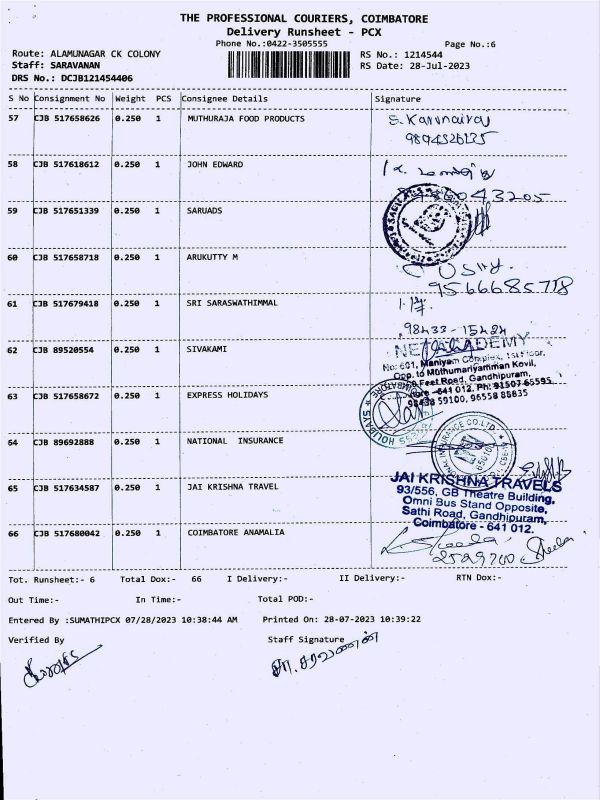 THE PROFESSIONAL COURIERS, COIMBATORE
Delivery Runsheet - PCX
Phone No.:0422-3505555
Page No.:6
Route: ALAMUNAGAR CK COLONY
RS No.: 1214544
Staff: SARAVANAN
RS Date: 28-Jul-2023
DRS No.: DCJB121454406
S No Consignment No Weight PCS Consignee Details Signature
57 CJB 517658626 0.250 1 MUTHURAJA FOOD PRODUCTS
58 CJB 517618612 0.250 1 JOHN EDWARD
59 CJB 517651339 0.250 1 SARUADS
60 CJB 517658718 0.250 1 ARUKUTTY M
9566685718
61 CJB 517679418 0.250 1 SRI SARASWATHIMMAL
98433-15424
62 CJB 89520554 0.250 1 SIVAKAMI
No: 601, Maniyam Complex, 1st Floor,
Opp. to Muthumariyamman Kovil,
Feet Road, Gandhipuram,
641 012. Ph: 91507 65595
59100, 96558 85835
63 CJB 517658672 0.250 1 EXPRESS HOLIDAYS
64 CJB 89692888 0.250 1 NATIONAL INSURANCE
65 CJB 517634587 0.250 1 JAI KRISHNA TRAVEL
JAI KRISHNA TRAVELS
93/556, GB Theatre Building,
Omni Bus Stand Opposite,
Sathi Road, Gandhipuram,
Coimbatore - 641 012.
66 CJB 517680042 0.250 1 COIMBATORE ANAMALIA
Sheela
2529700
Tot. Runsheet:- 6 Total Dox:- 66 I Delivery:- II Delivery:- RTN Dox:-
Out Time:- In Time:- Total POD:-
Entered By :SUMATHIPCX 07/28/2023 10:38:44 AM Printed On: 28-07-2023 10:39:22
Verified By Staff Signature
சா. சரவணன்